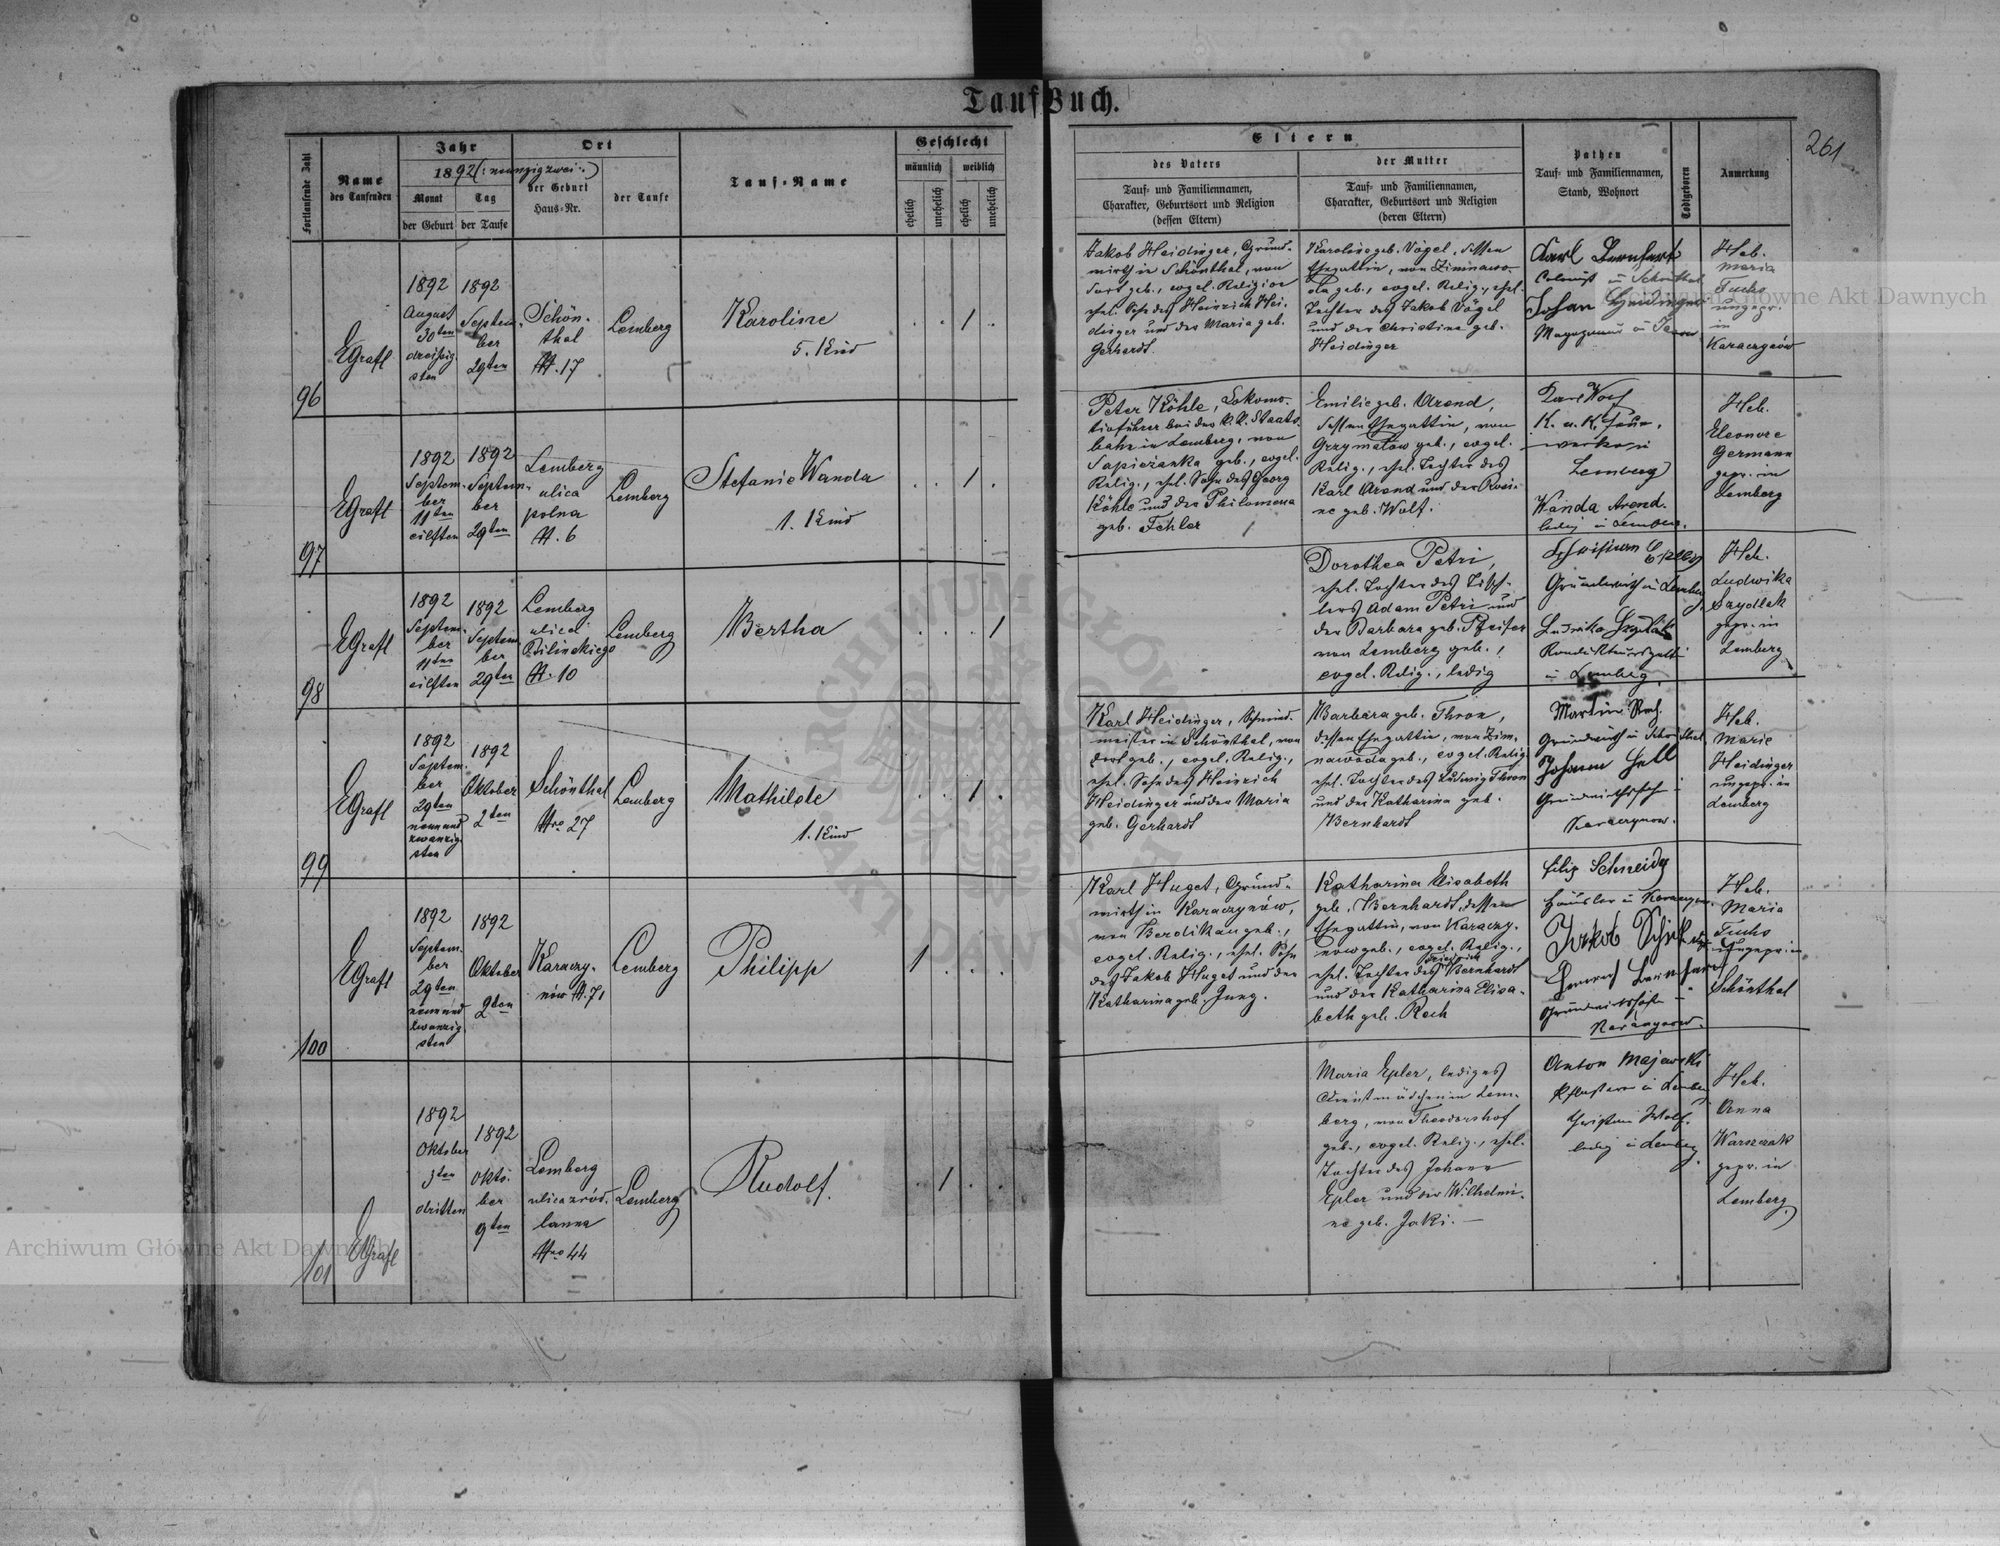 Tauf Buch.
261
Fortlaufende Zahl
Name
des Taufenden
Jahr
1892 (: nunzigzwei :)
Monat
der Geburt
Tag
der Taufe
Ort
der Geburt
Haus-Nr.
der Taufe
Tauf-Name
Geschlecht
männlich
weiblich
ehelich
unehelich
ehelich
unehelich
Eltern
des Vaters
Tauf- und Familiennamen,
Charakter, Geburtsort und Religion
(dessen Eltern)
der Mutter
Tauf- und Familiennamen,
Charakter, Geburtsort und Religion
(deren Eltern)
Pathen
Tauf- und Familiennamen,
Stand, Wohnort
Todtgeboren
Anmerkung
96
EGrafl
1892
August
30ten
dreißig
sten
1892
Septem-
ber
29ten
Schön-
thal
N. 17
Lemberg
Karoline
5. Kind
1
Jakob Heidinger, Grund-
wirth in Schönthal, von
dort geb., evgel. Religion
ehel. Sohn des Heinrich Hei-
dinger und der Maria geb.
Gerhardt.
Karoline geb. Vögel, dessen
Ehegattin, von Zimnawo-
da geb., evgel. Relig., ehel.
Tochter des Jakob Vögel
und der Christine geb.
Heidinger
Karl Bernhard
Colonist in Schönthal
Johan Heidinger
Heb.
Maria
Fuchs
ungepr.
in
Karaczynów
97
EGrafl
1892
Septem-
ber
11ten
eilften
1892
Septem-
ber
29ten
Lemberg
ulica
polna
N. 6
Lemberg
Stefanie Wanda
1. Kind
1
Peter Köhle, Lokomo-
tivführer bei der k.k. Staats-
bahn in Lemberg, von
Sapieżanka geb., evgel.
Relig., ehel. Sohn des Georg
Köhle und der Philomena
geb. Fehler
Emilie geb. Arend,
dessen Ehegattin, von
Grzymałów geb., evgel.
Relig., ehel. Tochter des
Karl Arend und der Rosi-
ne geb. Wolf.
Karl Wolf
K. u. K.
Lemberg
Wanda Arend.
ledig in Lemberg.
Heb.
Eleonore
Germann
gepr. in
Lemberg
98
EGrafl
1892
Septem-
ber
11ten
eilften
1892
Septem-
ber
29ten
Lemberg
ulica
Bilinskiego
N. 10
Lemberg
Bertha
1
Dorothea Petri,
ehel. Tochter des Tisch-
lers Adam Petri und
der Barbara geb. Pfeifer
von Lemberg geb.,
evgel. Relig., ledig
Grundwirth in Lemberg
in Lemberg.
Heb.
Ludwika
Szydlak
gepr. in
Lemberg
99
EGrafl
1892
Septem-
ber
29ten
neunund
zwanzig
sten
1892
Oktober
2ten
Schönthal
Nro 27
Lemberg
Mathilde
1. Kind
1
Karl Heidinger, Schmied-
meister in Schönthal, von
dort geb., evgel. Relig.,
ehel. Sohn des Heinrich
Heidinger und der Maria
geb. Gerhardt
Barbara geb. Thron,
dessen Ehegattin, von Zim-
nawoda geb., evgel. Relig.
ehel. Tochter des Ludwig Thron
und der Katharina geb.
Bernhardt
Martin Rech.
Grundwirth in Schönthal
Johann Hell
Grundwirthssohn in
Karaczynow.
Heb.
Marie
Heidinger
ungepr. in
Lemberg
100
EGrafl
1892
Septem-
ber
29ten
neunund
zwanzig
sten
1892
Oktober
2ten
Karaczy-
nów N. 71
Lemberg
Philipp
1
Karl Huget, Grund-
wirth in Karaczynów,
von Berdikau geb.,
evgel. Relig., ehel. Sohn
des Jakob Huget und der
Katharina geb. Jung.
Katharina Elisabeth
geb. Bernhardt, dessen
Ehegattin, von Karaczy-
now geb., evgel. Relig.,
ehel. Tochter des Friedrich Bernhardt
und der Katharina Elisa-
beth geb. Rech
Filip Schneider
Häusler in Karaczynow.
Jakob
Grundwirthssohn in
Karaczynow.
Heb.
Maria
Fuchs
Ungepr. in
Schönthal
101
EGrafl
1892
Oktober
3ten
dritten
1892
Okto-
ber
9ten
Lemberg
ulica zród-
lanna
Nro 44
Lemberg
Rudolf.
1
Maria Epler, lediges
Dienstmädchen in Lem-
berg, von Theodorshof
geb., evgel. Relig., ehel.
Tochter des Johann
Epler und der Wilhelmi-
ne geb. Jaki. —
Anton Majewski
Pflasterer in Lemberg
Christian Wolf.
ledig in Lemberg.
Heb.
Anna
Warszzak
gepr. in
Lemberg.
Archiwum Główne Akt Dawnych
Archiwum Główne Akt Dawnych
ARCHIWUM GŁÓWNE AKT DAWNYCH